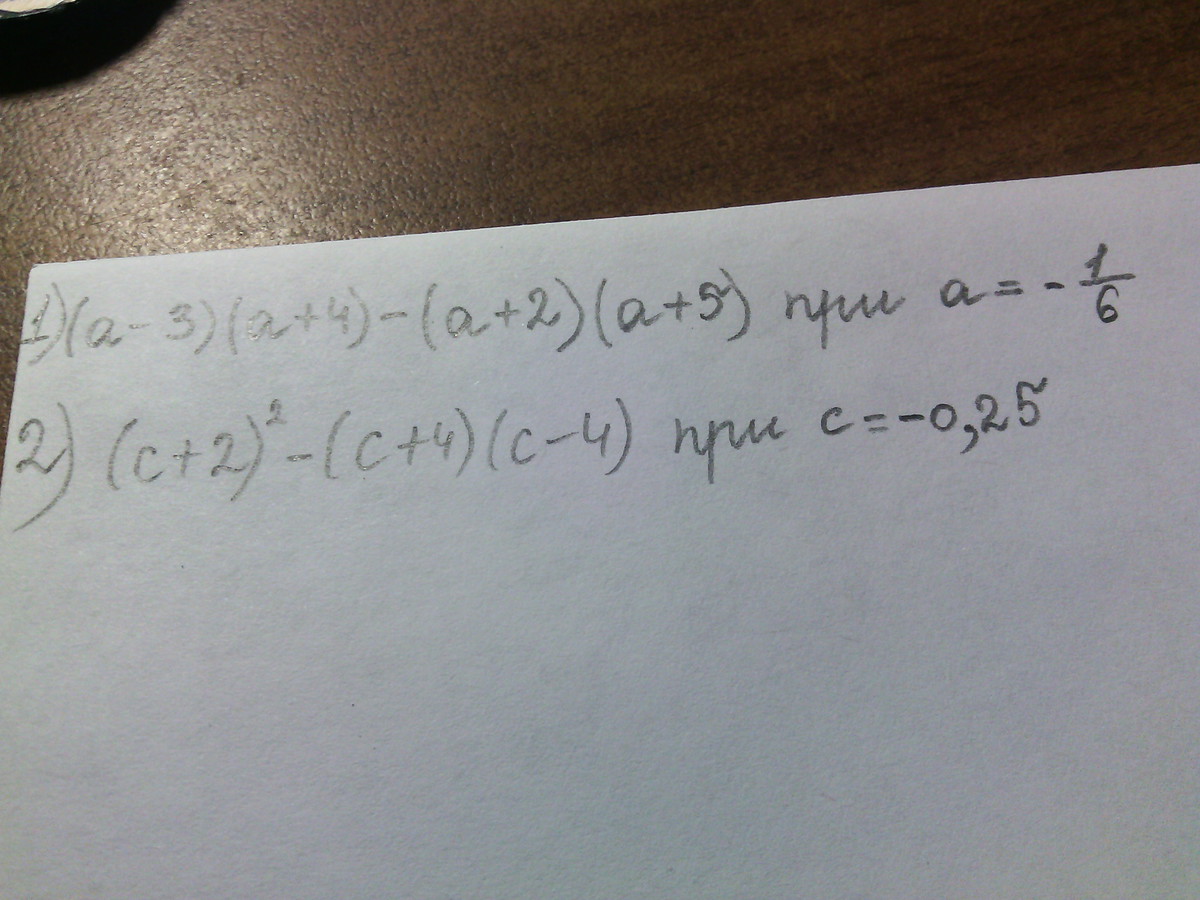 1) (a - 3)(a + 4) - (a + 2)(a + 5) при a = - 1/6
2) (c + 2)² - (c + 4)(c - 4) при c = -0,25